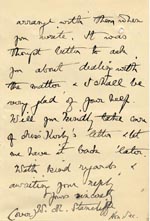 arrange with them when
you wrote. It was
thought better to ask
you about dealing with
the matter & I shall be
very glad of your help.
Will you kindly take care
of Miss 's letter & let
me have it back later.
With kind regards, &
awaiting your reply,
Yours sincerely